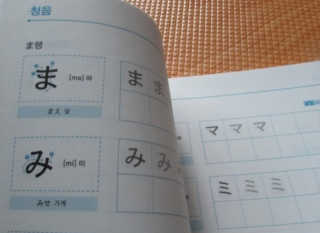 청음
ま행
ま [ma] 마 ま ま
まえ 앞
み [mi] 미 み み
みせ 가게
マ マ マ
ミ ミ ミ